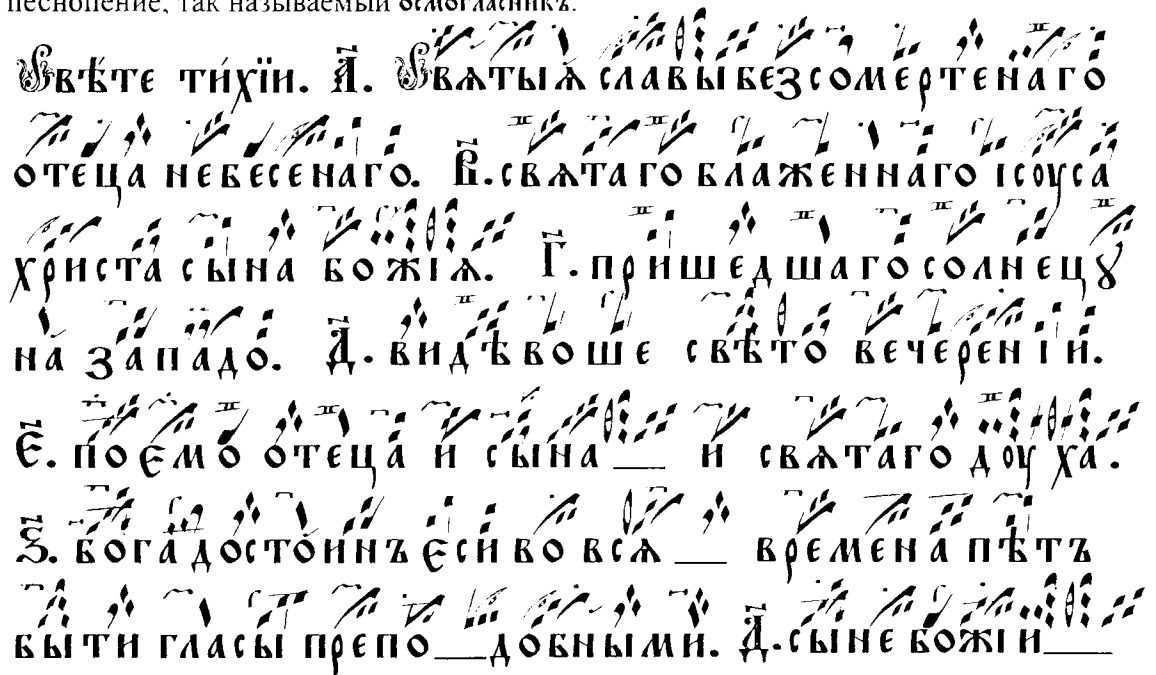 песнопение, так называемый осмогласникъ.
Свѣте ти́хїи. А҃. Святыѧ славы безсомертенаго
отеца небесенаго. В҃. свѧтаго блаженнаго ісоуса
христа сына божіѧ. Г҃. пришедшаго солнецꙋ
на западо. Д҃. видѣвоше свѣто вечереніи.
Є҃. поємо отеца и сына__ и свѧтаго доуха.
Ѕ҃. бога достоинъ єси во всѧ__ времена пѣтъ
быти гласы препо__добными. Д҃. сыне божіи__